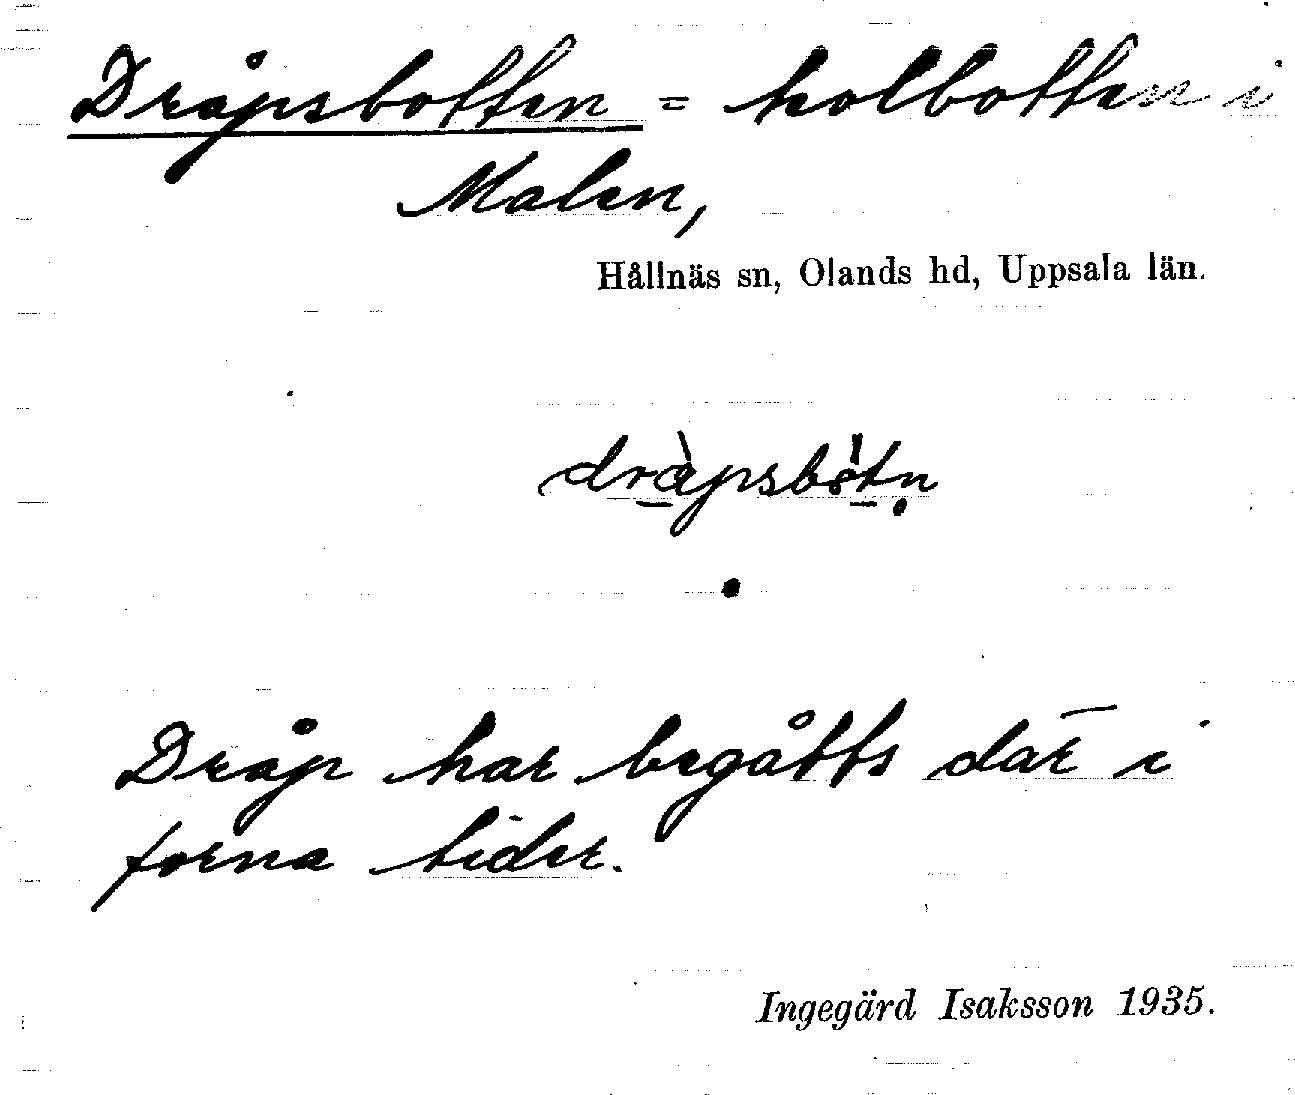 Dråpsbotten = kolbotten i
Malen,
Hållnäs sn, Olands hd, Uppsala län.
Dråp har begåtts där i
forna tider.
Ingegärd Isaksson 1935.